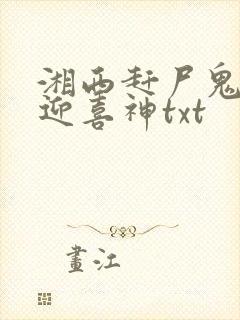 湘西赶尸鬼
迎喜神txt
畫江